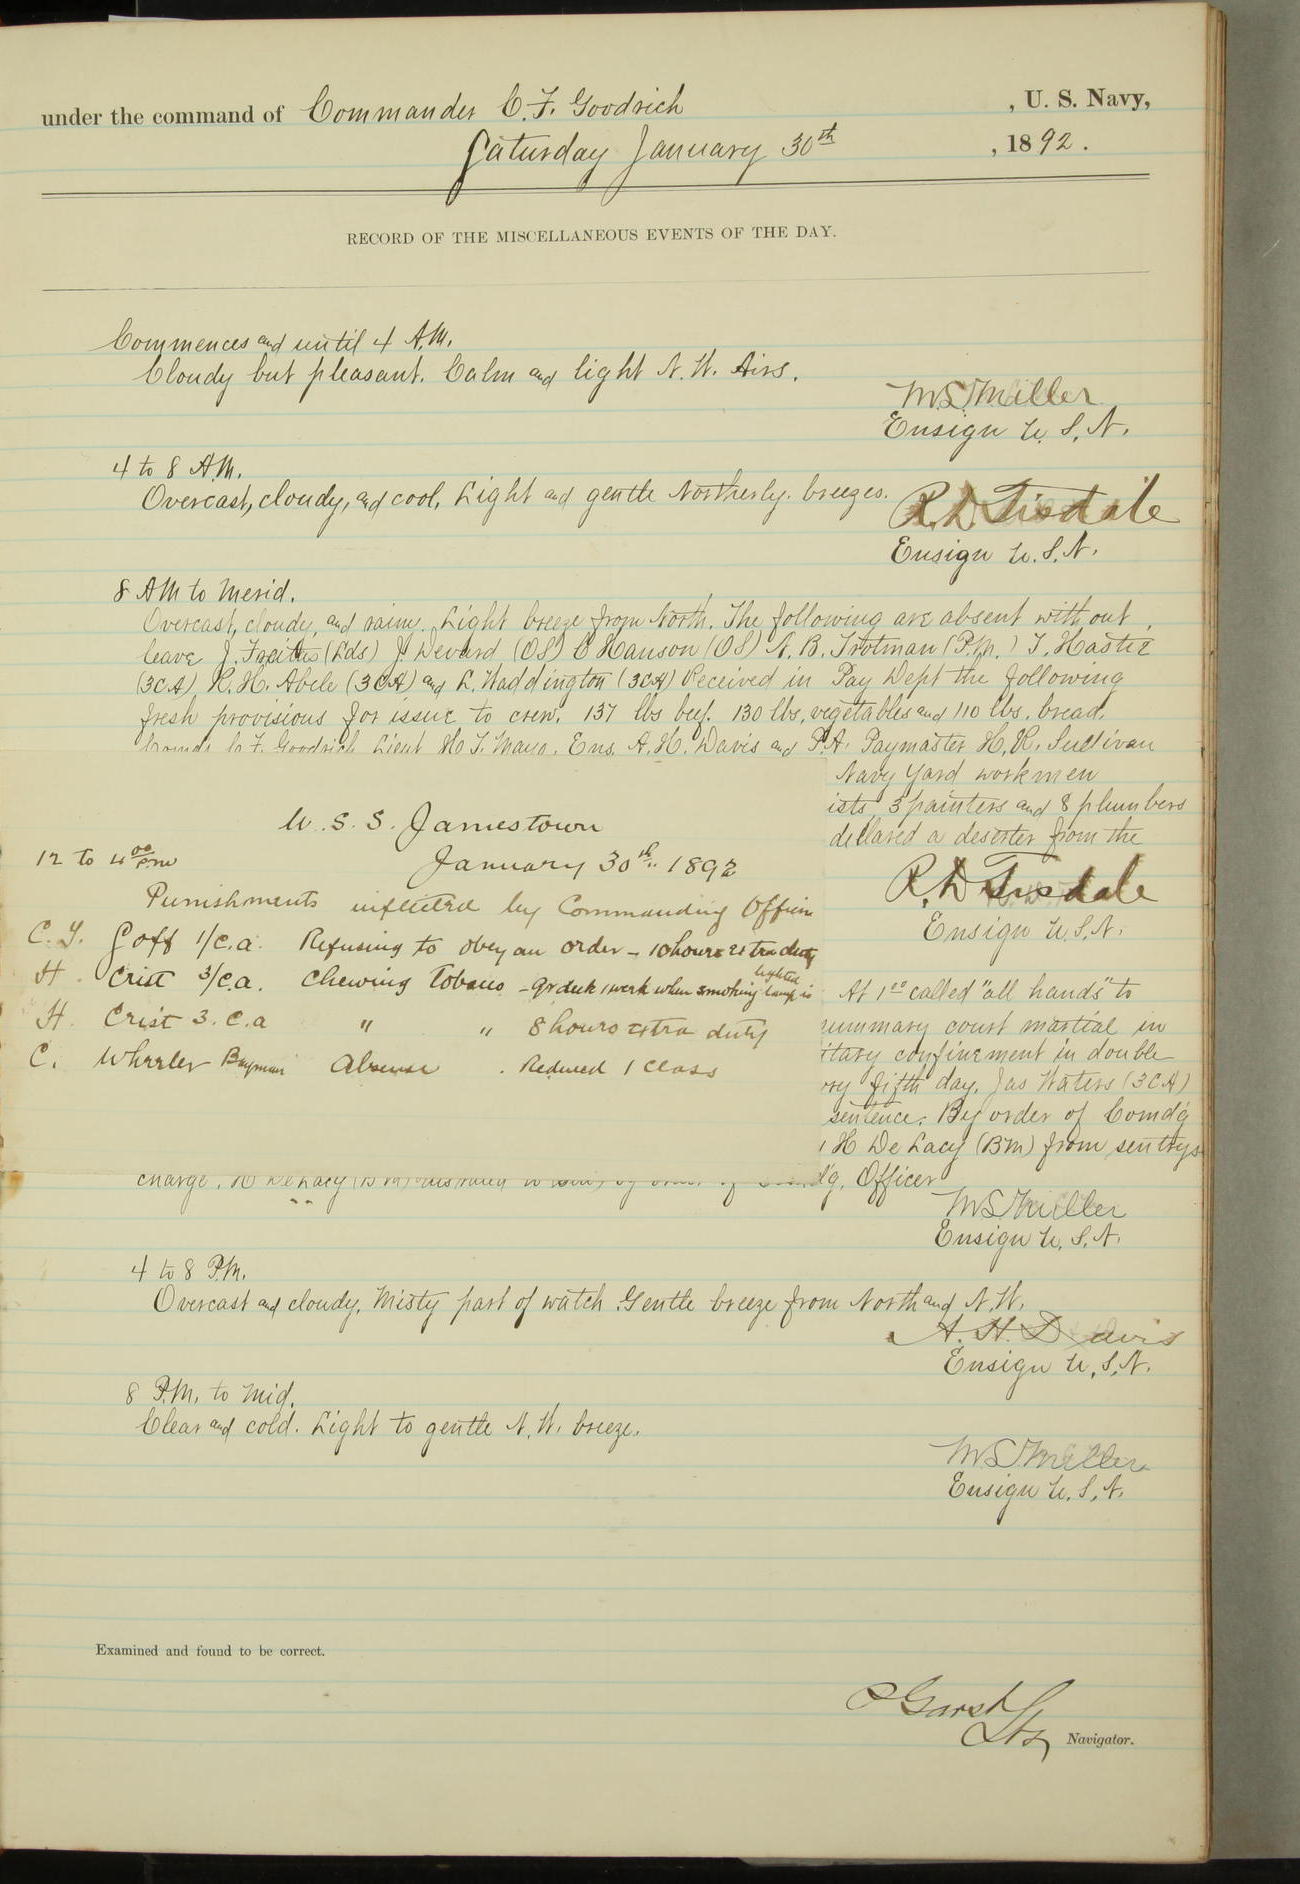 under the command of Commander C. F. Goodrich , U. S. Navy,
Saturday January 30th , 1892.
RECORD OF THE MISCELLANEOUS EVENTS OF THE DAY.
Commences and until 4 A.M.
Cloudy but pleasant. Calm and light N.W. Airs.
M.S. Miller
Ensign U.S.N.
4 to 8 A.M.
Overcast, cloudy, and cool. Light and gentle Northerly breezes.
R.D. Tisdale
Ensign U.S.N.
8 AM to Merid.
Overcast, cloudy, and rain. Light breeze from North. The following are absent without
leave J. (Lds) J. Devard (OS) C Hanson (OS) N. B. Trotman (P.M.) T. Haster
(3CA) R. H. Abele (3CA) and L. Waddington (3CA) Received in Pay Dept the following
fresh provisions for issue to crew. 137 lbs beef. 130 lbs. vegetables and 110 lbs. bread.
Comdr C. F. Goodrich Lieut H. T. Mayo. Ens. A. H. Davis and P.A. Paymaster H. R. Sullivan
Navy Yard workmen
ists, 3 painters and 8 plumbers
declared a deserter from the
R.D. Tisdale
Ensign U.S.N.
U.S.S. Jamestown
12 to 4 00 PM January 30th 1892
Punishments inflicted by Commanding Officer
C. Y. Goff 1/c.a. Refusing to obey an order – 10 hours extra duty
H. Crist 3/c.a. Chewing Tobacco – Qr deck 1 week when smoking lamp is lighted
H. Crist 3.c.a " " 8 hours extra duty
C. Wheeler Bayman Absence . Reduced 1 class
At 1 00 called "all hands" to
summary court martial in
itary confinement in double
ry fifth day. Jas Waters (3CA)
sentence. By order of Comd'g
H De Lacy (BM) from sentrys
charge. H De Lacy (BM) by order of Comd'g. Officer
M.S. Miller
Ensign U.S.N.
4 to 8 P.M.
Overcast and cloudy. Misty part of watch. Gentle breeze from North and N.W.
A. H. Davis
Ensign U.S.N.
8 P.M. to Mid.
Clear and cold. Light to gentle N.W. breeze.
M.S. Miller
Ensign U.S.N.
Examined and found to be correct.
P Garst
Lt Navigator.